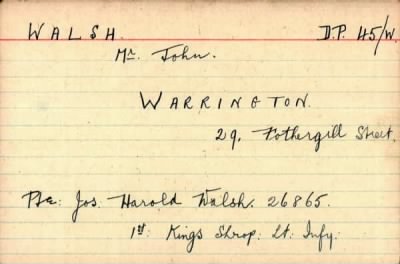 WALSH. D.P. 45/W.
Mr. John.
WARRINGTON.
29, Fothergill Street.
Pte. Jos. Harold Walsh. 26865.
1st. Kings Shrop. Lt. Infy.